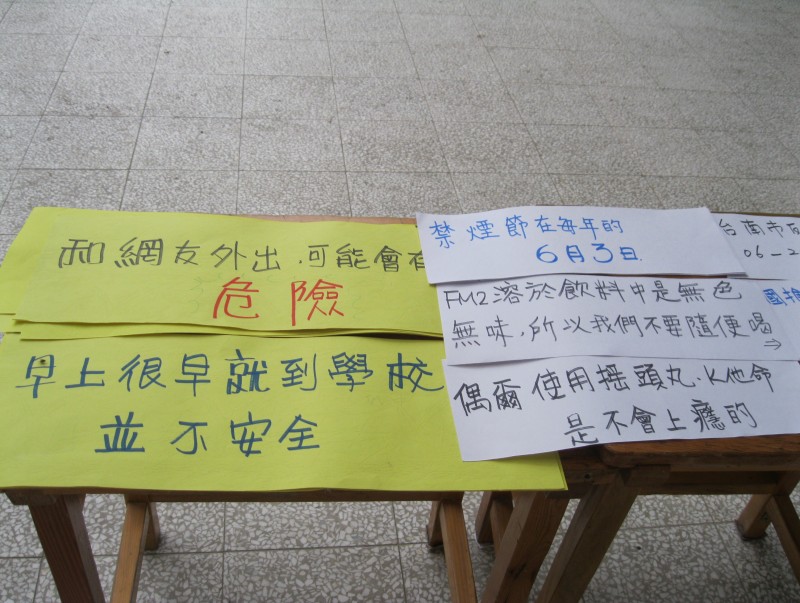 和網友外出．可能會有
危險
早上很早就到學校
並不安全
禁煙節在每年的
6月3日.
FM2溶於飲料中是無色
無味，所以我們不要隨便喝
→
偶爾使用搖頭丸．K他命
是不會上癮的
台南市
06-2